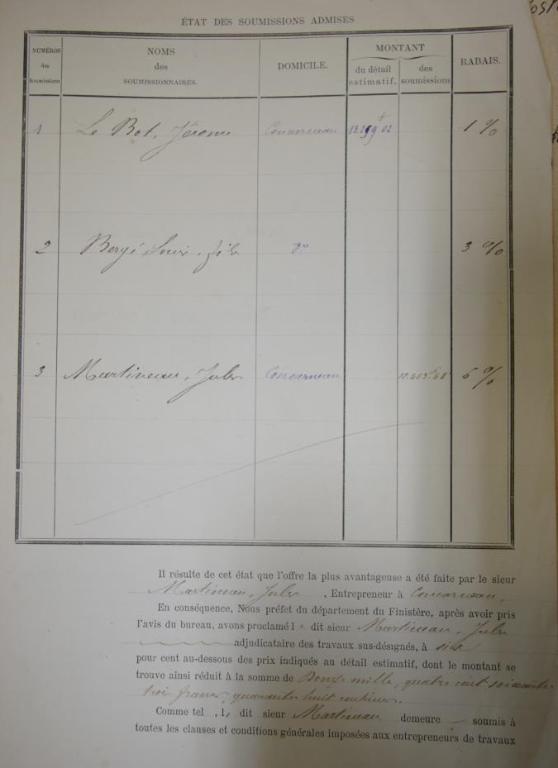 ÉTAT DES SOUMISSIONS ADMISES
NUMÉROS des soumissions
NOMS des SOUMISSIONNAIRES.
DOMICILE.
MONTANT
du détail estimatif.
des soumissions
RABAIS.
1 Le Bot, Jérome Concarneau 1 %
2 Bergé Louis, fils do 3 %
3 Martineau, Jules Concarneau 6 %
Il résulte de cet état que l'offre la plus avantageuse a été faite par le sieur
Martineau, Jules, Entrepreneur à Concarneau.
En conséquence, Nous préfet du département du Finistère, après avoir pris
l'avis du bureau, avons proclamé le dit sieur Martineau, Jules
adjudicataire des travaux sus-désignés, à six
pour cent au-dessous des prix indiqués au détail estimatif, dont le montant se
trouve ainsi réduit à la somme de mille, quatre cent soixante
trois francs, quarante huit centimes.
Comme tel, le dit sieur Martineau demeure soumis à
toutes les clauses et conditions générales imposées aux entrepreneurs de travaux